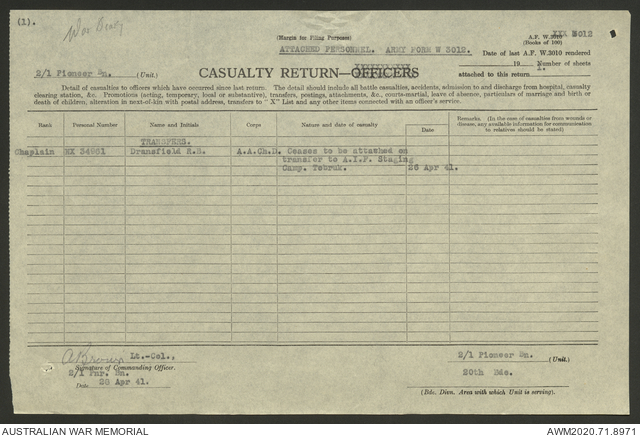 (1).
War Diary
(Margin for Filing Purposes)
ATTACHED PERSONNEL. ARMY FORM W 3012.
A.F. W.3010 XXX 3012
(Books of 100)
Date of last A.F. W.3010 rendered
19 Number of sheets
attached to this return 1.
2/1 Pioneer Bn. (Unit.)
CASUALTY RETURN—OFFICERS
Detail of casualties to officers which have occurred since last return. The detail should include all battle casualties, accidents, admission to and discharge from hospital, casualty
clearing station, &c. Promotions (acting, temporary, local or substantive), transfers, postings, attachments, &c., courts-martial, leave of absence, particulars of marriage and birth or
death of children, alteration in next-of-kin with postal address, transfers to "X" List and any other items connected with an officer's service.
Rank Personal Number Name and Initials Corps Nature and date of casualty Date
Remarks. (In the case of casualties from wounds or
disease, any available information for communication
to relatives should be stated)
TRANSFERS.
Chaplain NX 34981 Dransfield R.H. A.A.Ch.D. Ceases to be attached on
transfer to A.I.F. Staging
Camp. Tobruk. 26 Apr 41.
A Brown Lt.-Col.,
Signature of Commanding Officer.
2/1 Pnr. Bn.
Date 26 Apr 41.
2/1 Pioneer Bn. (Unit.)
20th Bde.
(Bde. Divn. Area with which Unit is serving).
AUSTRALIAN WAR MEMORIAL AWM2020.71.8971